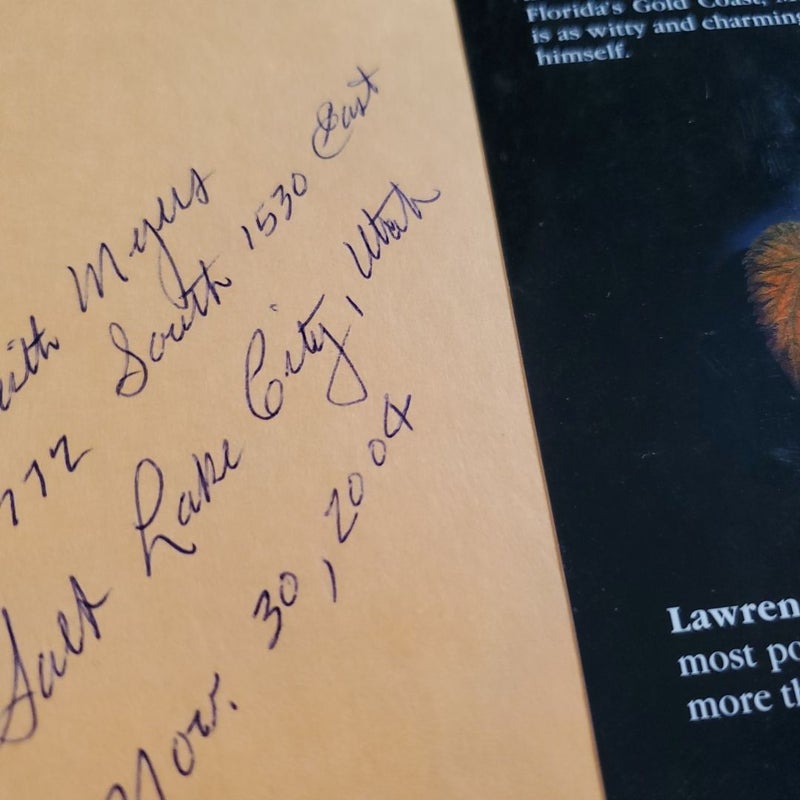 ith Myers
772 South 1530 East
Salt Lake City, Utah
Nov. 30, 2004
Florida's Gold Coast,
is as witty and charming
himself.
Lawren
most po
more th